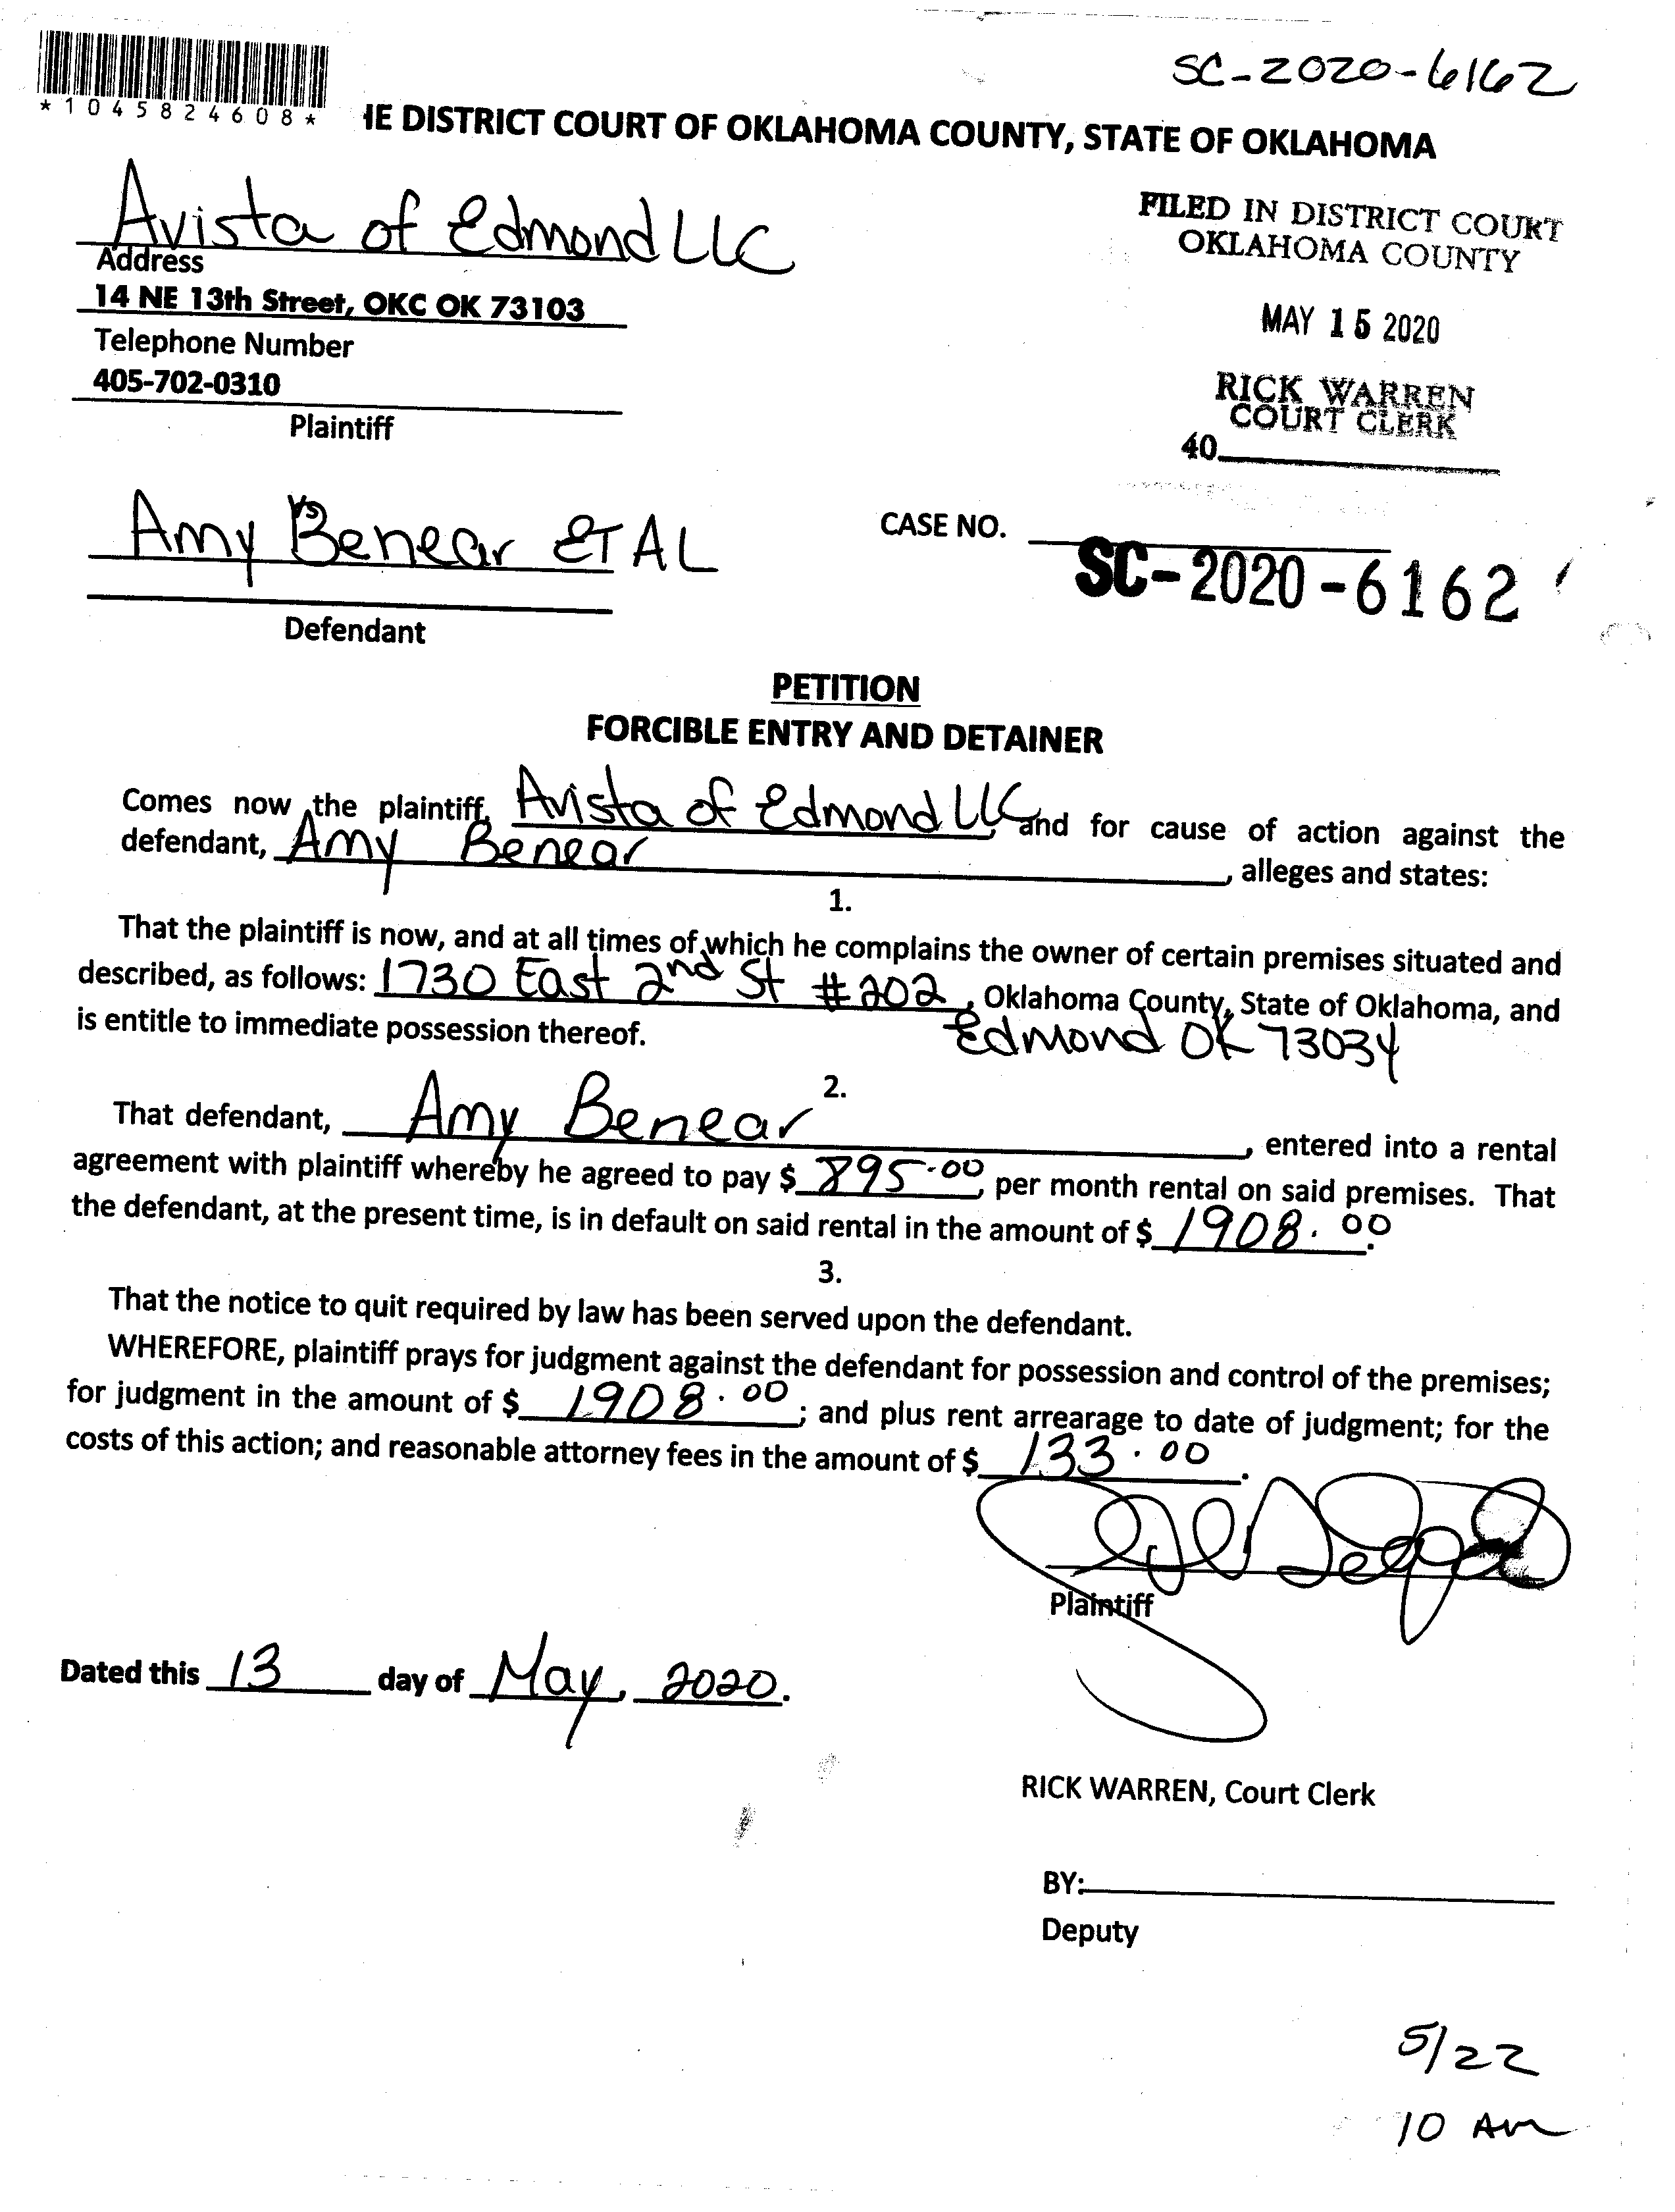 SC-2020-6162
*1045824608*
IE DISTRICT COURT OF OKLAHOMA COUNTY, STATE OF OKLAHOMA
Avista of Edmond LLC
Address
14 NE 13th Street, OKC OK 73103
Telephone Number
405-702-0310
Plaintiff
FILED IN DISTRICT COURT
OKLAHOMA COUNTY
MAY 15 2020
RICK WARREN
COURT CLERK
40
vs
Amy Benear ET AL
Defendant
CASE NO.
SC-2020-6162
PETITION
FORCIBLE ENTRY AND DETAINER
Comes now the plaintiff, Avista of Edmond LLC, and for cause of action against the
defendant, Amy Benear, alleges and states:
1.
That the plaintiff is now, and at all times of which he complains the owner of certain premises situated and
described, as follows: 1730 East 2nd St #202, Oklahoma County, State of Oklahoma, and
is entitle to immediate possession thereof. Edmond OK 73034
2.
That defendant, Amy Benear, entered into a rental
agreement with plaintiff whereby he agreed to pay $ 895.00, per month rental on said premises. That
the defendant, at the present time, is in default on said rental in the amount of $ 1908.00.
3.
That the notice to quit required by law has been served upon the defendant.
WHEREFORE, plaintiff prays for judgment against the defendant for possession and control of the premises;
for judgment in the amount of $ 1908.00; and plus rent arrearage to date of judgment; for the
costs of this action; and reasonable attorney fees in the amount of $ 133.00.
Plaintiff
Dated this 13 day of May, 2020.
RICK WARREN, Court Clerk
BY:
Deputy
5/22
10 AM